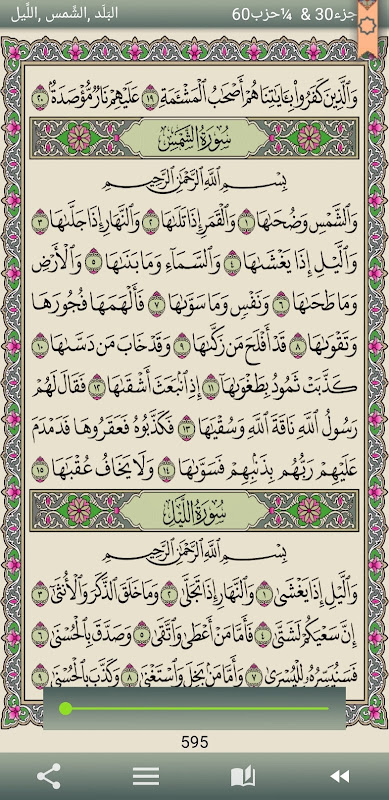 جزء30 & ¼حزب60
البَلَد, الشَّمس, اللَّيل
وَٱلَّذِينَ كَفَرُواْ بِـَٔايَٰتِنَا هُمْ أَصْحَٰبُ ٱلْمَشْـَٔمَةِ ١٩ عَلَيْهِمْ نَارٌ مُّؤْصَدَةٌۢ ٢٠
سُورَةُ الشَّمْسِ
بِسْمِ ٱللَّهِ ٱلرَّحْمَٰنِ ٱلرَّحِيمِ
وَٱلشَّمْسِ وَضُحَىٰهَا ١ وَٱلْقَمَرِ إِذَا تَلَىٰهَا ٢ وَٱلنَّهَارِ إِذَا جَلَّىٰهَا ٣
وَٱلَّيْلِ إِذَا يَغْشَىٰهَا ٤ وَٱلسَّمَآءِ وَمَا بَنَىٰهَا ٥ وَٱلْأَرْضِ
وَمَا طَحَىٰهَا ٦ وَنَفْسٍ وَمَا سَوَّىٰهَا ٧ فَأَلْهَمَهَا فُجُورَهَا
وَتَقْوَىٰهَا ٨ قَدْ أَفْلَحَ مَن زَكَّىٰهَا ٩ وَقَدْ خَابَ مَن دَسَّىٰهَا ١٠
كَذَّبَتْ ثَمُودُ بِطَغْوَىٰهَآ ١١ إِذِ ٱنۢبَعَثَ أَشْقَىٰهَا ١٢ فَقَالَ لَهُمْ
رَسُولُ ٱللَّهِ نَاقَةَ ٱللَّهِ وَسُقْيَٰهَا ١٣ فَكَذَّبُوهُ فَعَقَرُوهَا فَدَمْدَمَ
عَلَيْهِمْ رَبُّهُم بِذَنۢبِهِمْ فَسَوَّىٰهَا ١٤ وَلَا يَخَافُ عُقْبَٰهَا ١٥
سُورَةُ اللَّيْلِ
بِسْمِ ٱللَّهِ ٱلرَّحْمَٰنِ ٱلرَّحِيمِ
وَٱلَّيْلِ إِذَا يَغْشَىٰ ١ وَٱلنَّهَارِ إِذَا تَجَلَّىٰ ٢ وَمَا خَلَقَ ٱلذَّكَرَ وَٱلْأُنثَىٰٓ ٣
إِنَّ سَعْيَكُمْ لَشَتَّىٰ ٤ فَأَمَّا مَنْ أَعْطَىٰ وَٱتَّقَىٰ ٥ وَصَدَّقَ بِٱلْحُسْنَىٰ ٦
فَسَنُيَسِّرُهُۥ لِلْيُسْرَىٰ ٧ وَأَمَّا مَنۢ بَخِلَ وَٱسْتَغْنَىٰ ٨ وَكَذَّبَ بِٱلْحُسْنَىٰ ٩
595